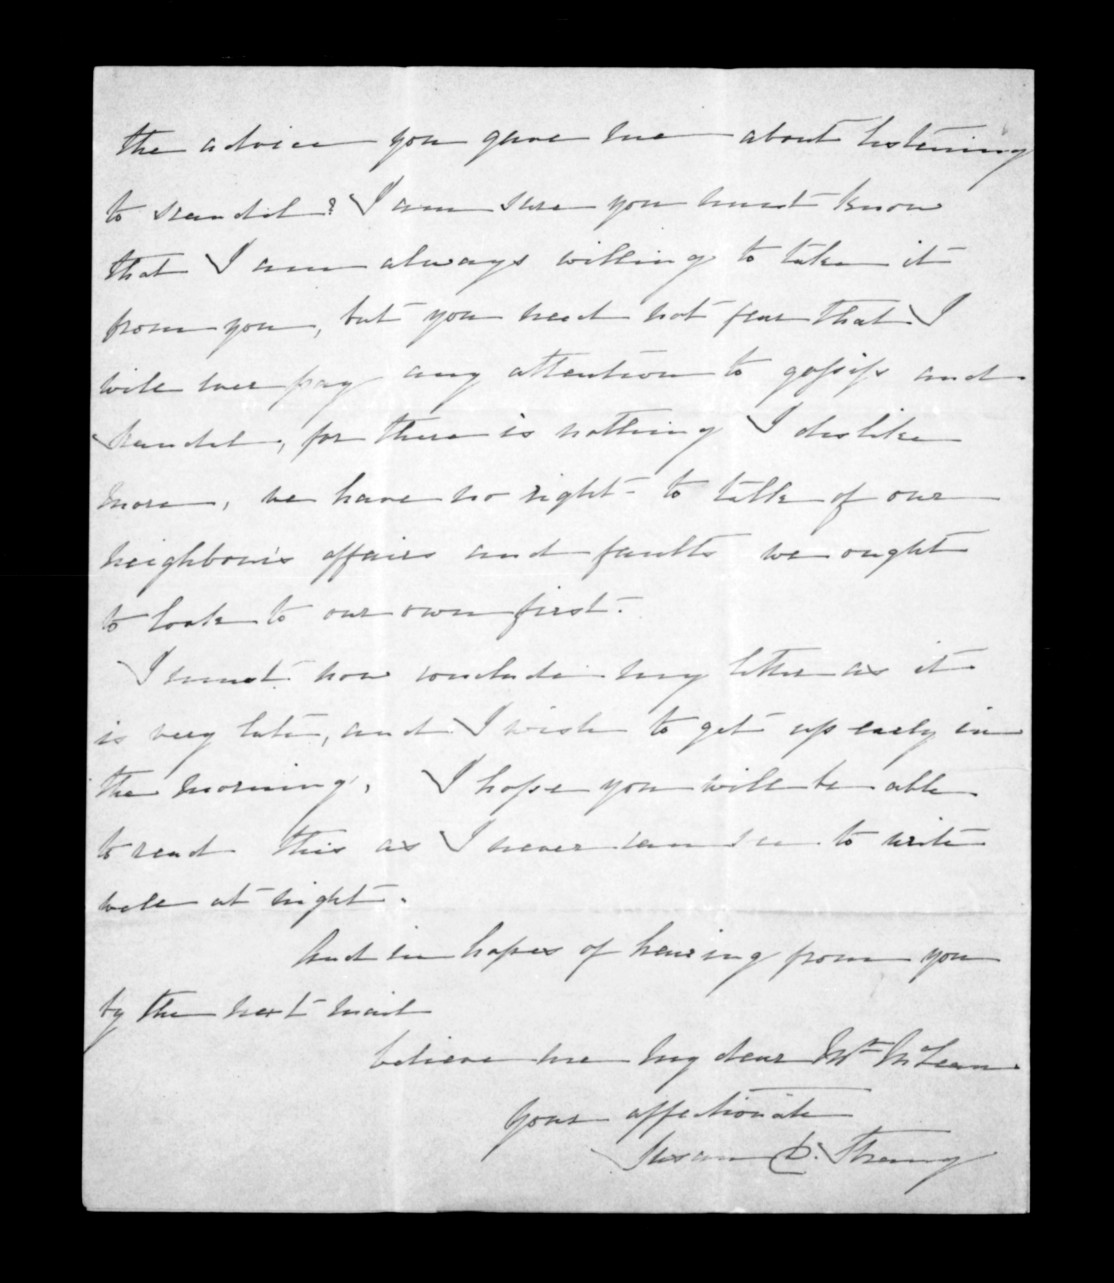 the advice you gave me about listening
to scandel? I am sure you must know
that I am always willing to take it
from you, but you need not fear that I
will ever pay any attention to gossips and
scandel, for there is nothing I dislike
more, we have no right to talk of our
neighbours affairs and faults we ought
to look to our own first.
I must now conclude my letter as it
is very late, and I wish to get up early in
the morning. I hope you will be able
to read this as I never can see to write
well at night.
And in hopes of hearing from you
by the next mail
believe me my dear Mr McLean
Your affectionate
Susan D. Strang